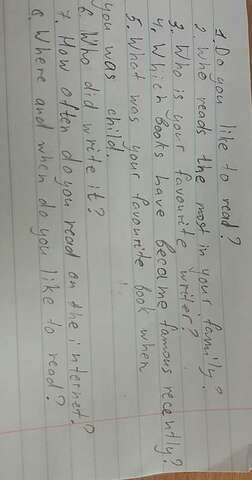 1. Do you like to read?
2. Who reads the most in your family?
3. Who is your favourite writer?
4. Which books have become famous recently?
5. What was your favourite book when
you was child.
6. Who did write it?
7. How often do you read on the internet?
8. Where and when do you like to read?